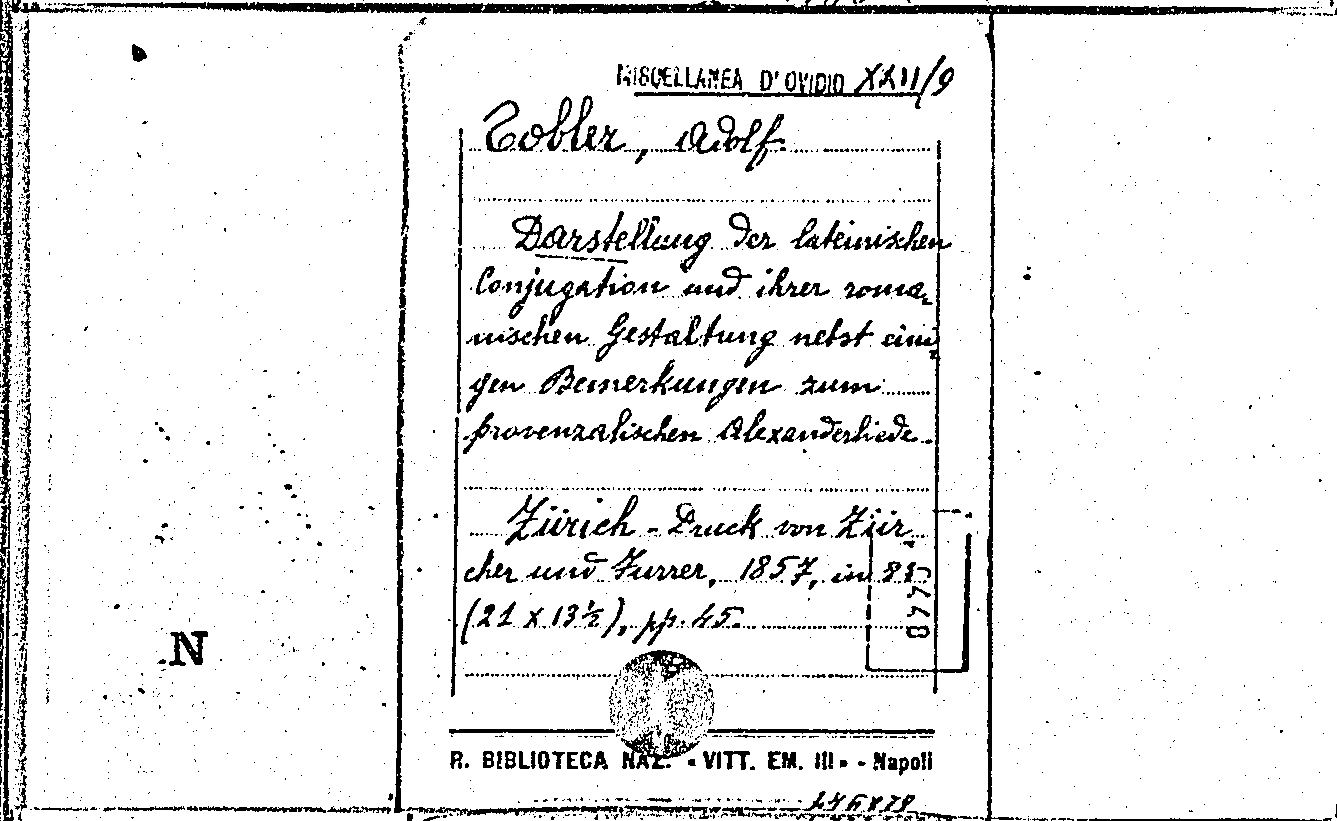 MISCELLANEA D'OVIDIO XXII/9
Tobler, Adolf.
Darstellung der lateinischen
Conjugation und ihrer roma-
nischen Gestaltung nebst eini-
gen Bemerkungen zum
provenzalischen Alexanderliede.
Zürich - Druck von Zür-
cher und Furrer, 1857, in 8º
(21 x 13½), pp. 45.
N
R. BIBLIOTECA NAZ. "VITT. EM. III" - Napoli